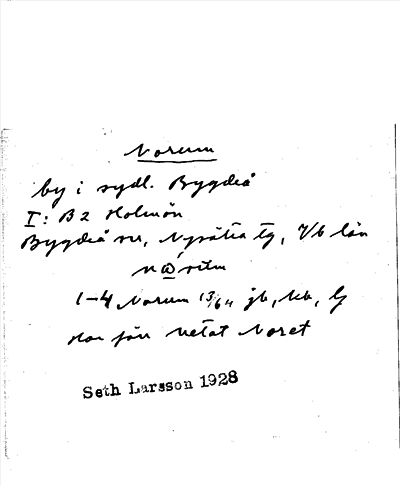 Norum
by i sydl. Bygdeå
I: B2 Holmön
Bygdeå sn, Nysätra tg, Vb län
1-4 Norum 13/64 jb, kb, lj
Har förr hetat Noret
Seth Larsson 1928